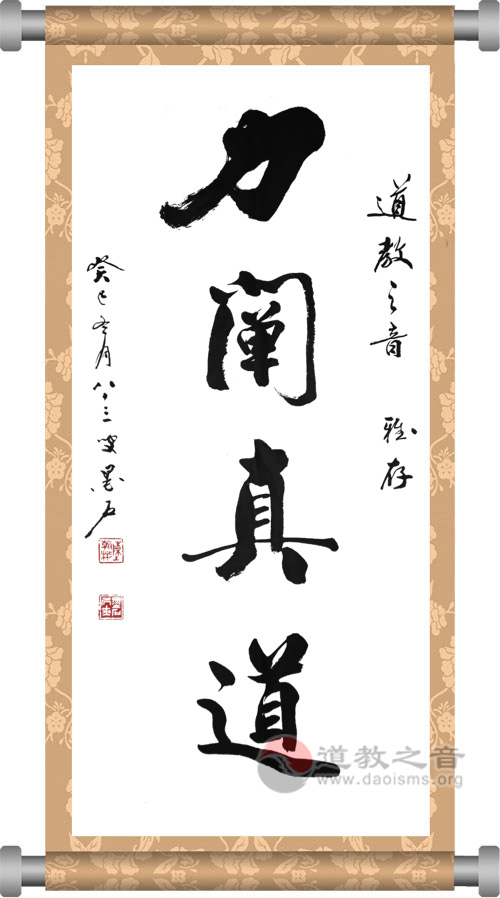 道教之音 雅存
力阐真道
癸巳冬月八十三叟墨石
道教之音
www.daoisms.org